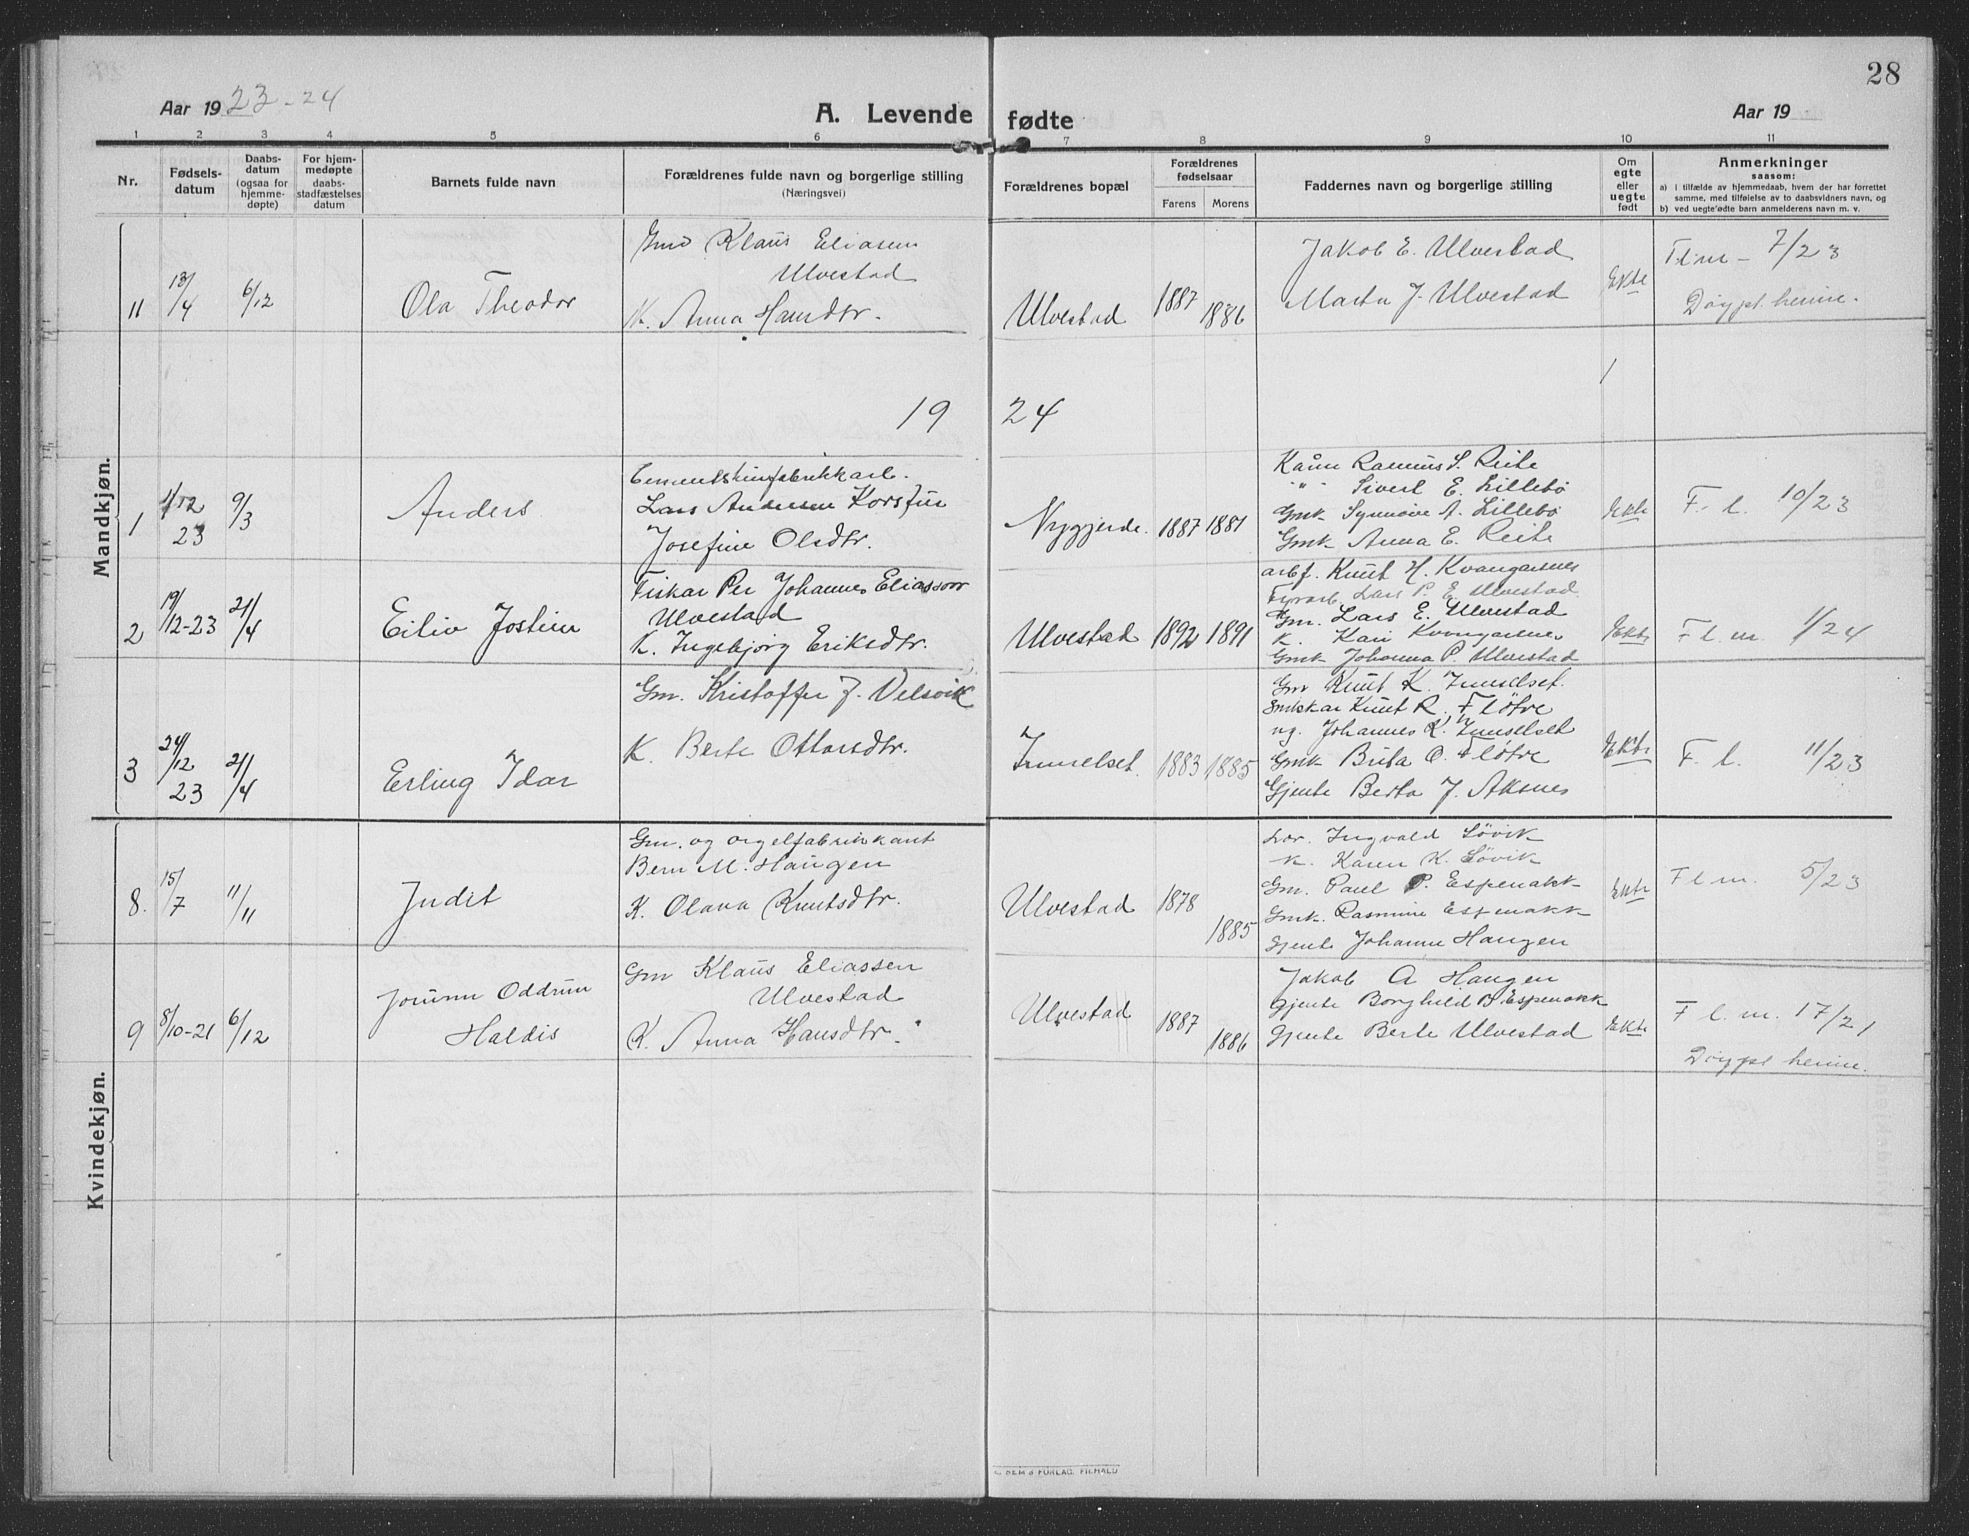 28
Aar 1923-24
A. Levende fødte
Aar 19
1 2 3 4 5 6 7 8 9 10 11
Nr.
Fødsels-
datum
Daabs-
datum
(ogsaa for
hjemme-
døpte)
For hjem-
medøpte
daabs-
stadfæstelses
datum
Barnets fulde navn
Forældrenes fulde navn og borgerlige stilling
(Næringsvei)
Forældrenes bopæl
Forældrenes
fødselsaar
Farens Morens
Faddernes navn og borgerlige stilling
Om
egte
eller
uegte
født
Anmerkninger
saasom:
a) i tilfælde av hjemmedaab, hvem der har forrettet
samme, med tilføielse av to daabsvidners navn, og
b) ved uegte fødte barn anmelderens navn m. v.
Mandkjøn.
11 13/4 6/12 Ola Theodor
Klaus Eliasen
Ulvestad
K. Anna Hansdtr.
Ulvestad 1887 1886
Jakob E. Ulvestad
Marta J. Ulvestad
Ekte
Flm - 7/23
Døypt heime.
1924
1 1/12 23 9/3 Anders
Lars Andersen Korsfur
Josefine Olsdtr.
Nygjerde. 1887 1881
Rasmus S. Reite
" " Sivert E. Lillebö
Gmk Synnöve A. Lillebö
Gmk Anna E. Reite
Ekte
F. l. 10/23
2 19/12-23 21/4 Eiliv Jostein
Fiskar Per Johannes Eliassen
Ulvestad
K. Ingebjörg Eriksdtr.
Ulvestad 1892 1891
arbf. Knut H. Kvangarsnes
Lars P. E. Ulvestad
Gm. Lars E. Ulvestad
K. Kari Kvangarsnes
Gmk Johanna P. Ulvestad
Ekte
F. l. m. 1/24
3 24/12 23 21/4 Erling Idar
Gm. Kristoffer J. Velsvik
K. Berte Ottarsdtr.
Innselset. 1883 1885
Gm Knut K. Innselset.
Knut R. Flötre
ug. Johannes K. Innselset
Gmk Brita O. Flötre
Gjente Berta J. Aksnes
Ekte
F. l. 11/23
Kvindekjøn.
8. 15/7 11/11 Judit
Gm. og orgelfabrikkant
Bern M. Haugen
K. Olava Knutsdtr.
Ulvestad 1878 1885
Lær. Ingvald Lövik
K. Karen K. Lövik
Gm. Paul P. Espenakk
Gmk. Rasmine Espenakk
Gjente Johanne Haugen
Ekte
F l m. 5/23
9 8/10-21 6/12 Jorunn Oddrun
Haldis
Gm Klaus Eliassen
Ulvestad
K. Anna Hansdtr.
Ulvestad 1887 1886
Jakob A Haugen
Gjente Borghild B Espenakk
Gjente Berte Ulvestad
Ekte
F l. m. 17/21
Døypt heime.